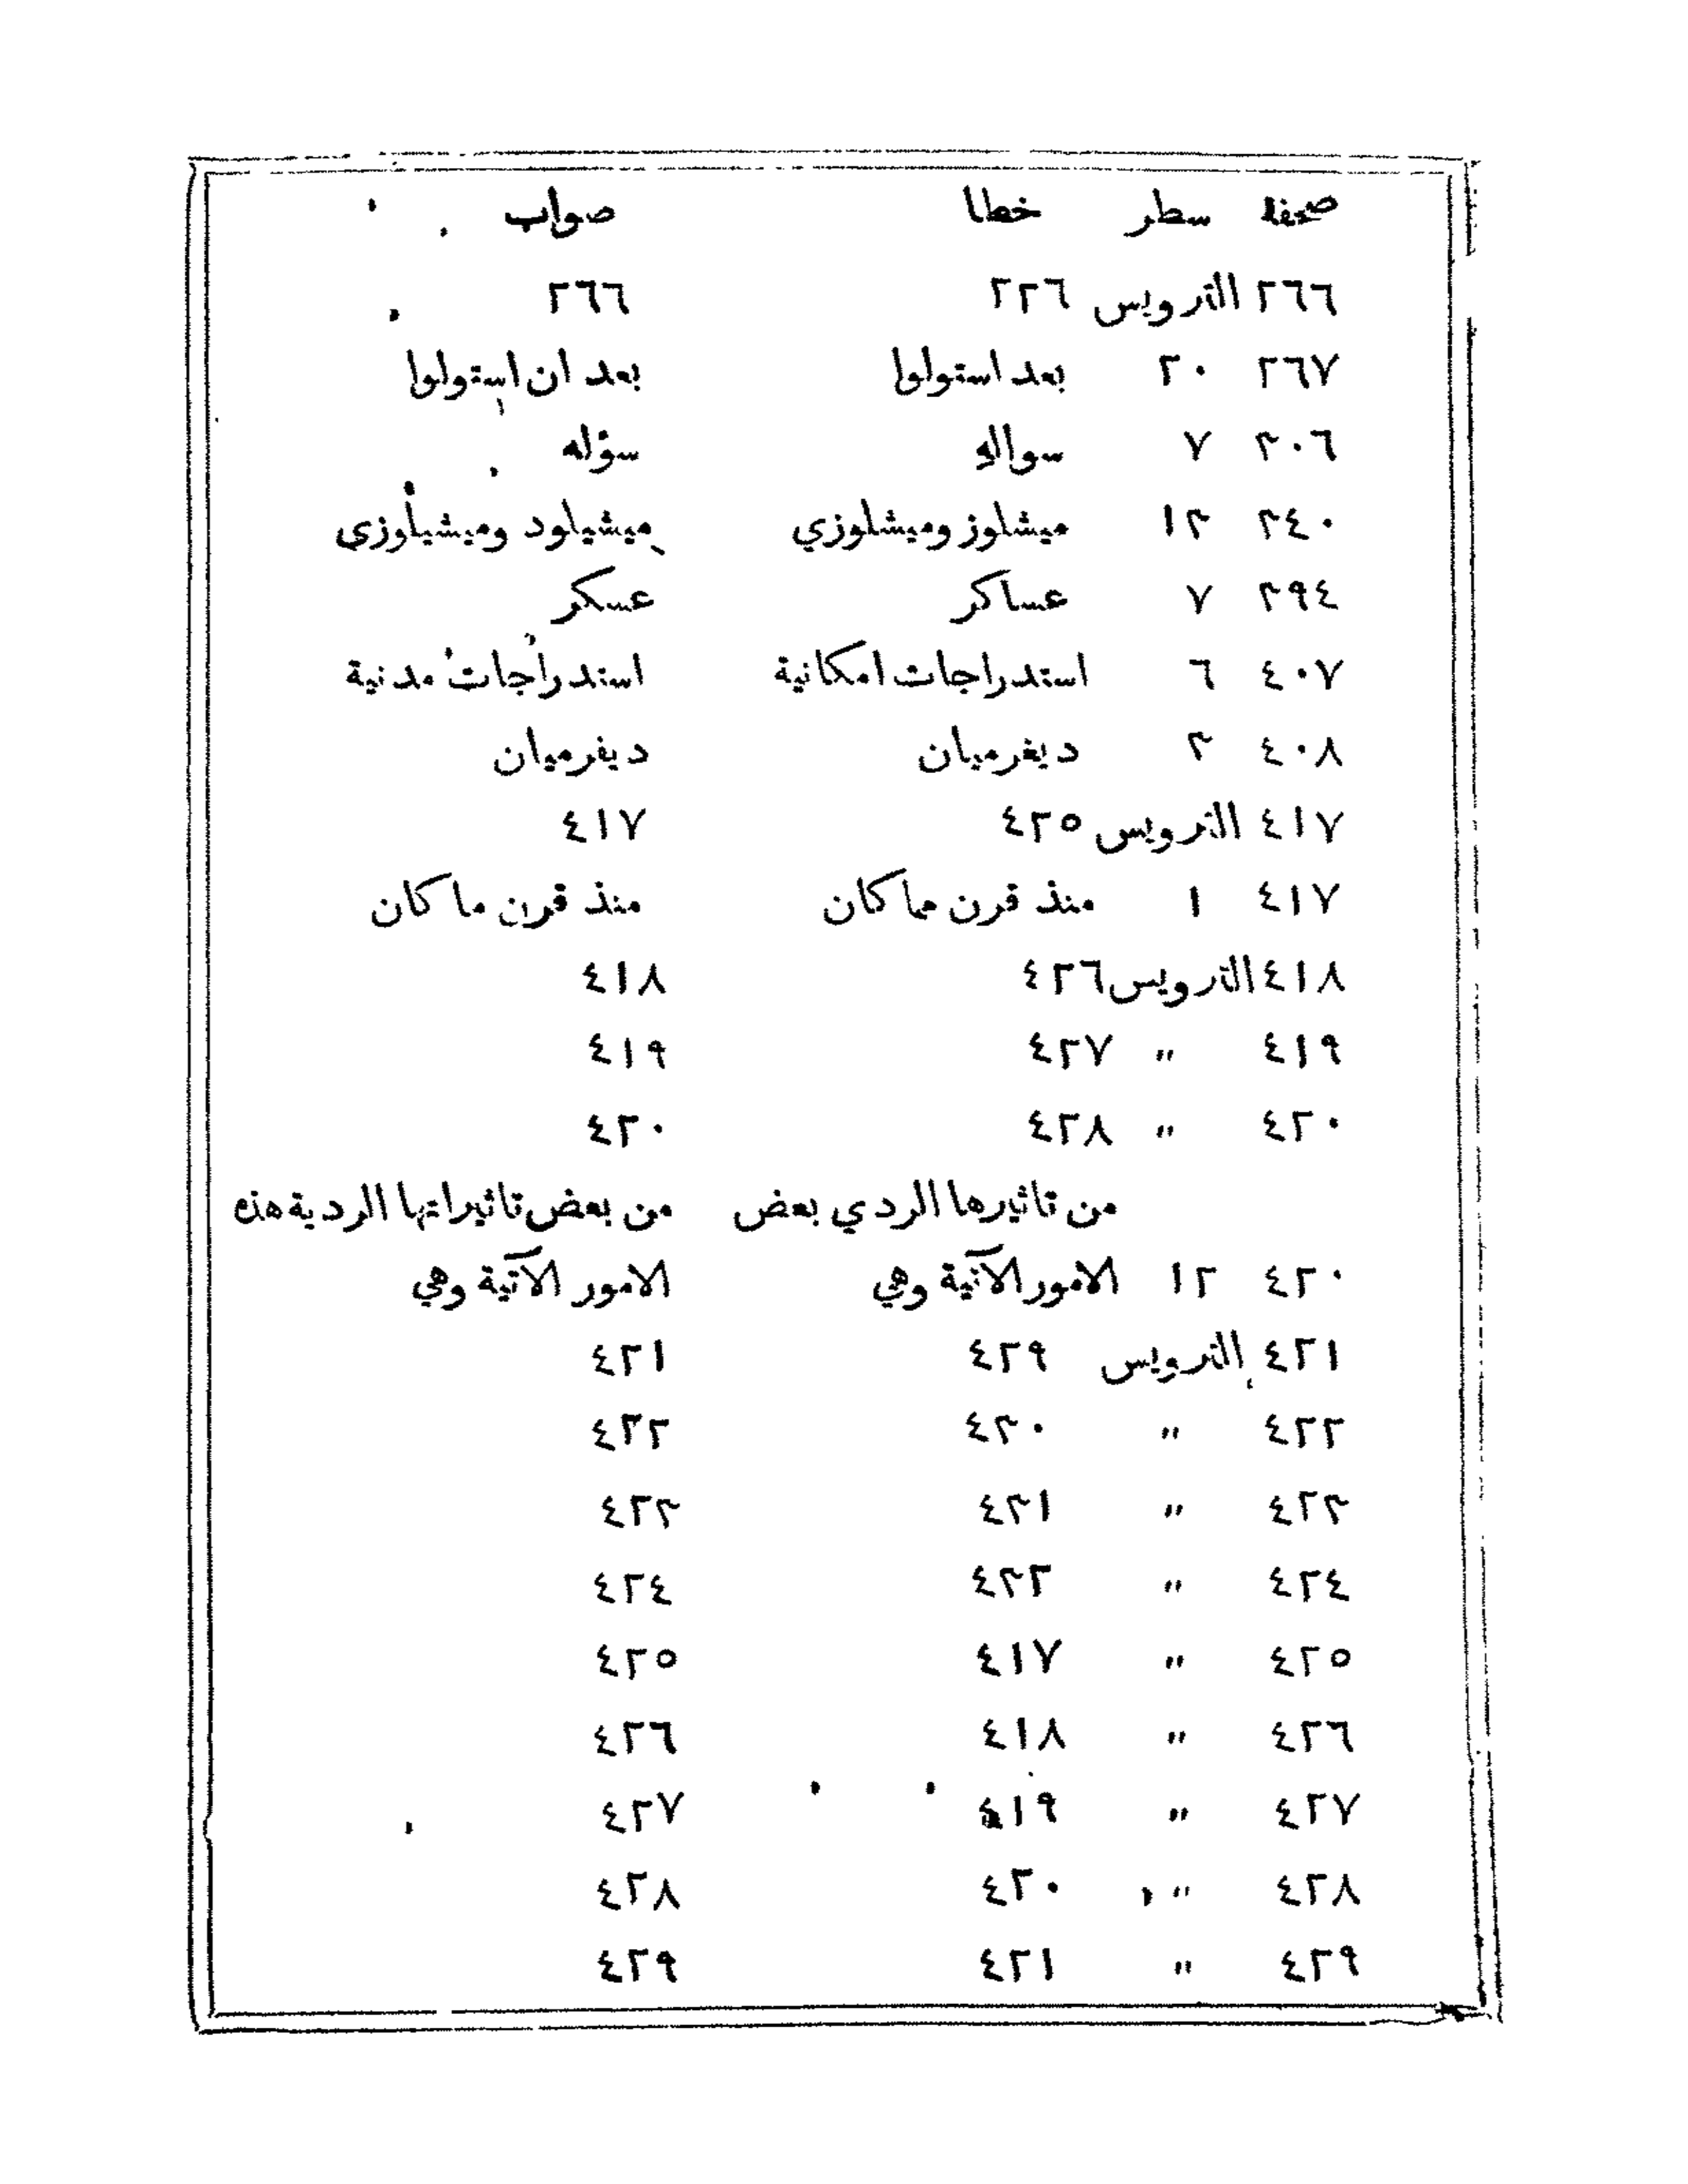 صحفة سطر خطا صواب
٢٦٦ الترويس ٢٢٦ ٢٦٦
٢٦٧ ٢٠ بعد استولوا بعد ان استولوا
٣٠٦ ٧ سواله سؤله
٣٤٠ ١٣ ميشلوز وميشلوزي ميشيلود وميشيلوزى
٣٩٤ ٧ عساكر عسكر
٤٠٧ ٦ استدراجات امكانية استدراجات مدنية
٤٠٨ ٣ ديغرميان ديفرميان
٤١٧ الترويس ٤٢٥ ٤١٧
٤١٧ ١ منذ قرن مما كان منذ قرن ما كان
٤١٨ الترويس ٤٢٦ ٤١٨
٤١٩ " ٤٢٧ ٤١٩
٤٢٠ " ٤٢٨ ٤٢٠
من تاثيرها الردي بعض من بعض تاثيراتها الردية هذه
٤٢٠ ١٢ الامور الآتية وهي الامور الآتية وهي
٤٢١ الترويس ٤٢٩ ٤٢١
٤٢٢ " ٤٣٠ ٤٢٢
٤٢٣ " ٤٣١ ٤٢٣
٤٢٤ " ٤٣٢ ٤٢٤
٤٢٥ " ٤١٧ ٤٢٥
٤٢٦ " ٤١٨ ٤٢٦
٤٢٧ " ٤١٩ ٤٢٧
٤٢٨ " ٤٢٠ ٤٢٨
٤٢٩ " ٤٢١ ٤٢٩